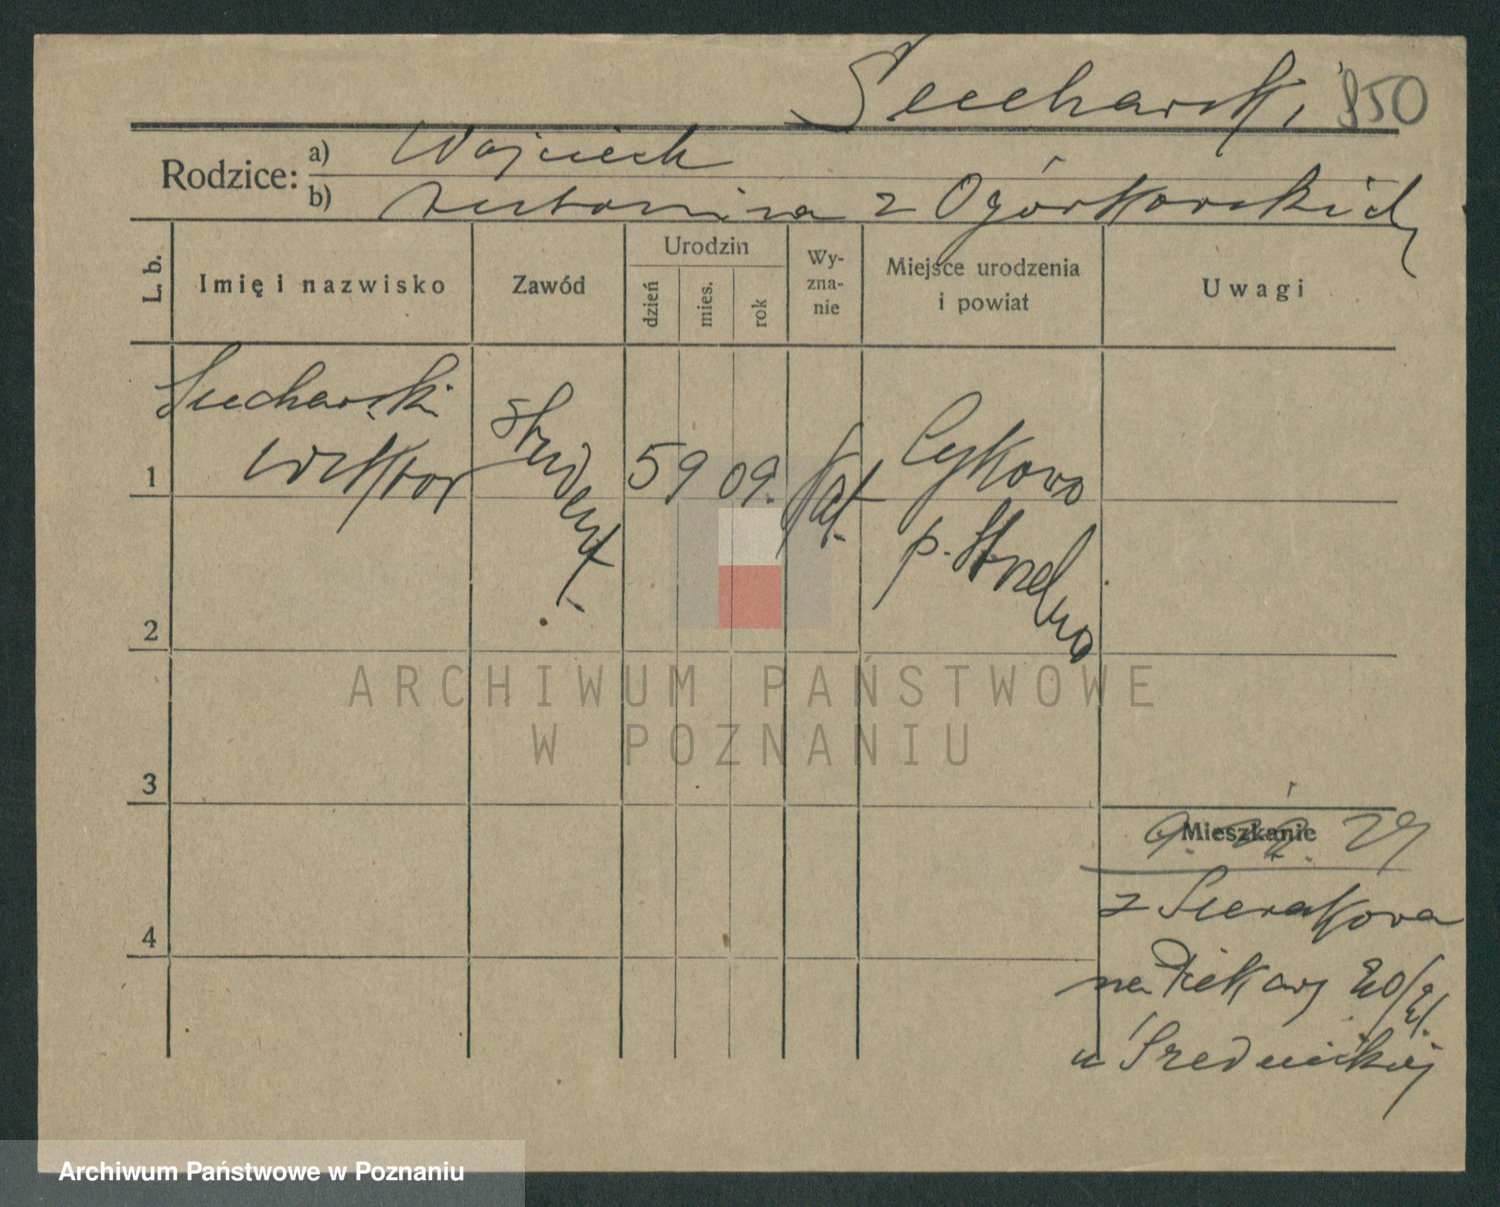 Sucharski 850
Rodzice:
a) Wojciech
b) Antonina z Ogórkowskich
L. b.
Imię i nazwisko
Zawód
Urodzin
dzień
mies.
rok
Wy-
zna-
nie
Miejsce urodzenia
i powiat
Uwagi
1
Sucharski
Wiktor
student.
5 9 09.
kat.
Cykowo
p. Strzelno
2
3
4
Mieszkanie
9. 29
z Sierakowa
na Piekary 20/21.
u Średnickiej
ARCHIWUM PAŃSTWOWE
W POZNANIU
Archiwum Państwowe w Poznaniu